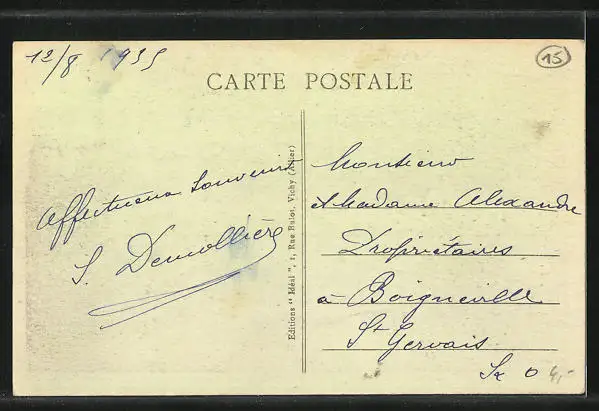 12/8 1935
15
CARTE POSTALE
Affectueux souvenirs
S. Demollière
Editions "Idéal", 1, Rue Balot, Vichy (Allier)
Monsieur
et Madame Alexandre
Propriétaires
à Boigneville
St Gervais
S O
4,-